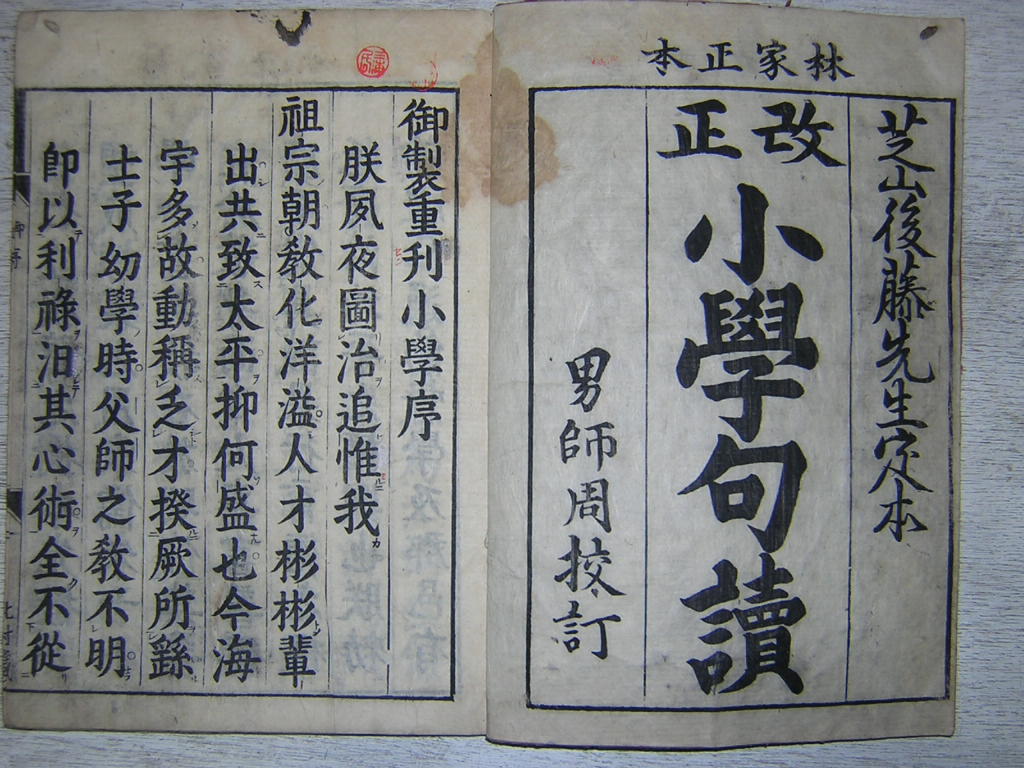 林家正本
芝山後藤先生定本
改正
小學句讀
男師周挍訂
御製重刋小學序
朕夙夜圖治追惟我
祖宗朝敎化洋溢人才彬彬輩
出共致太平抑何盛也今海
宇多故動稱乏才揆厥所繇
士子幼學時父師之敎不明
卽以利祿汨其心術全不從